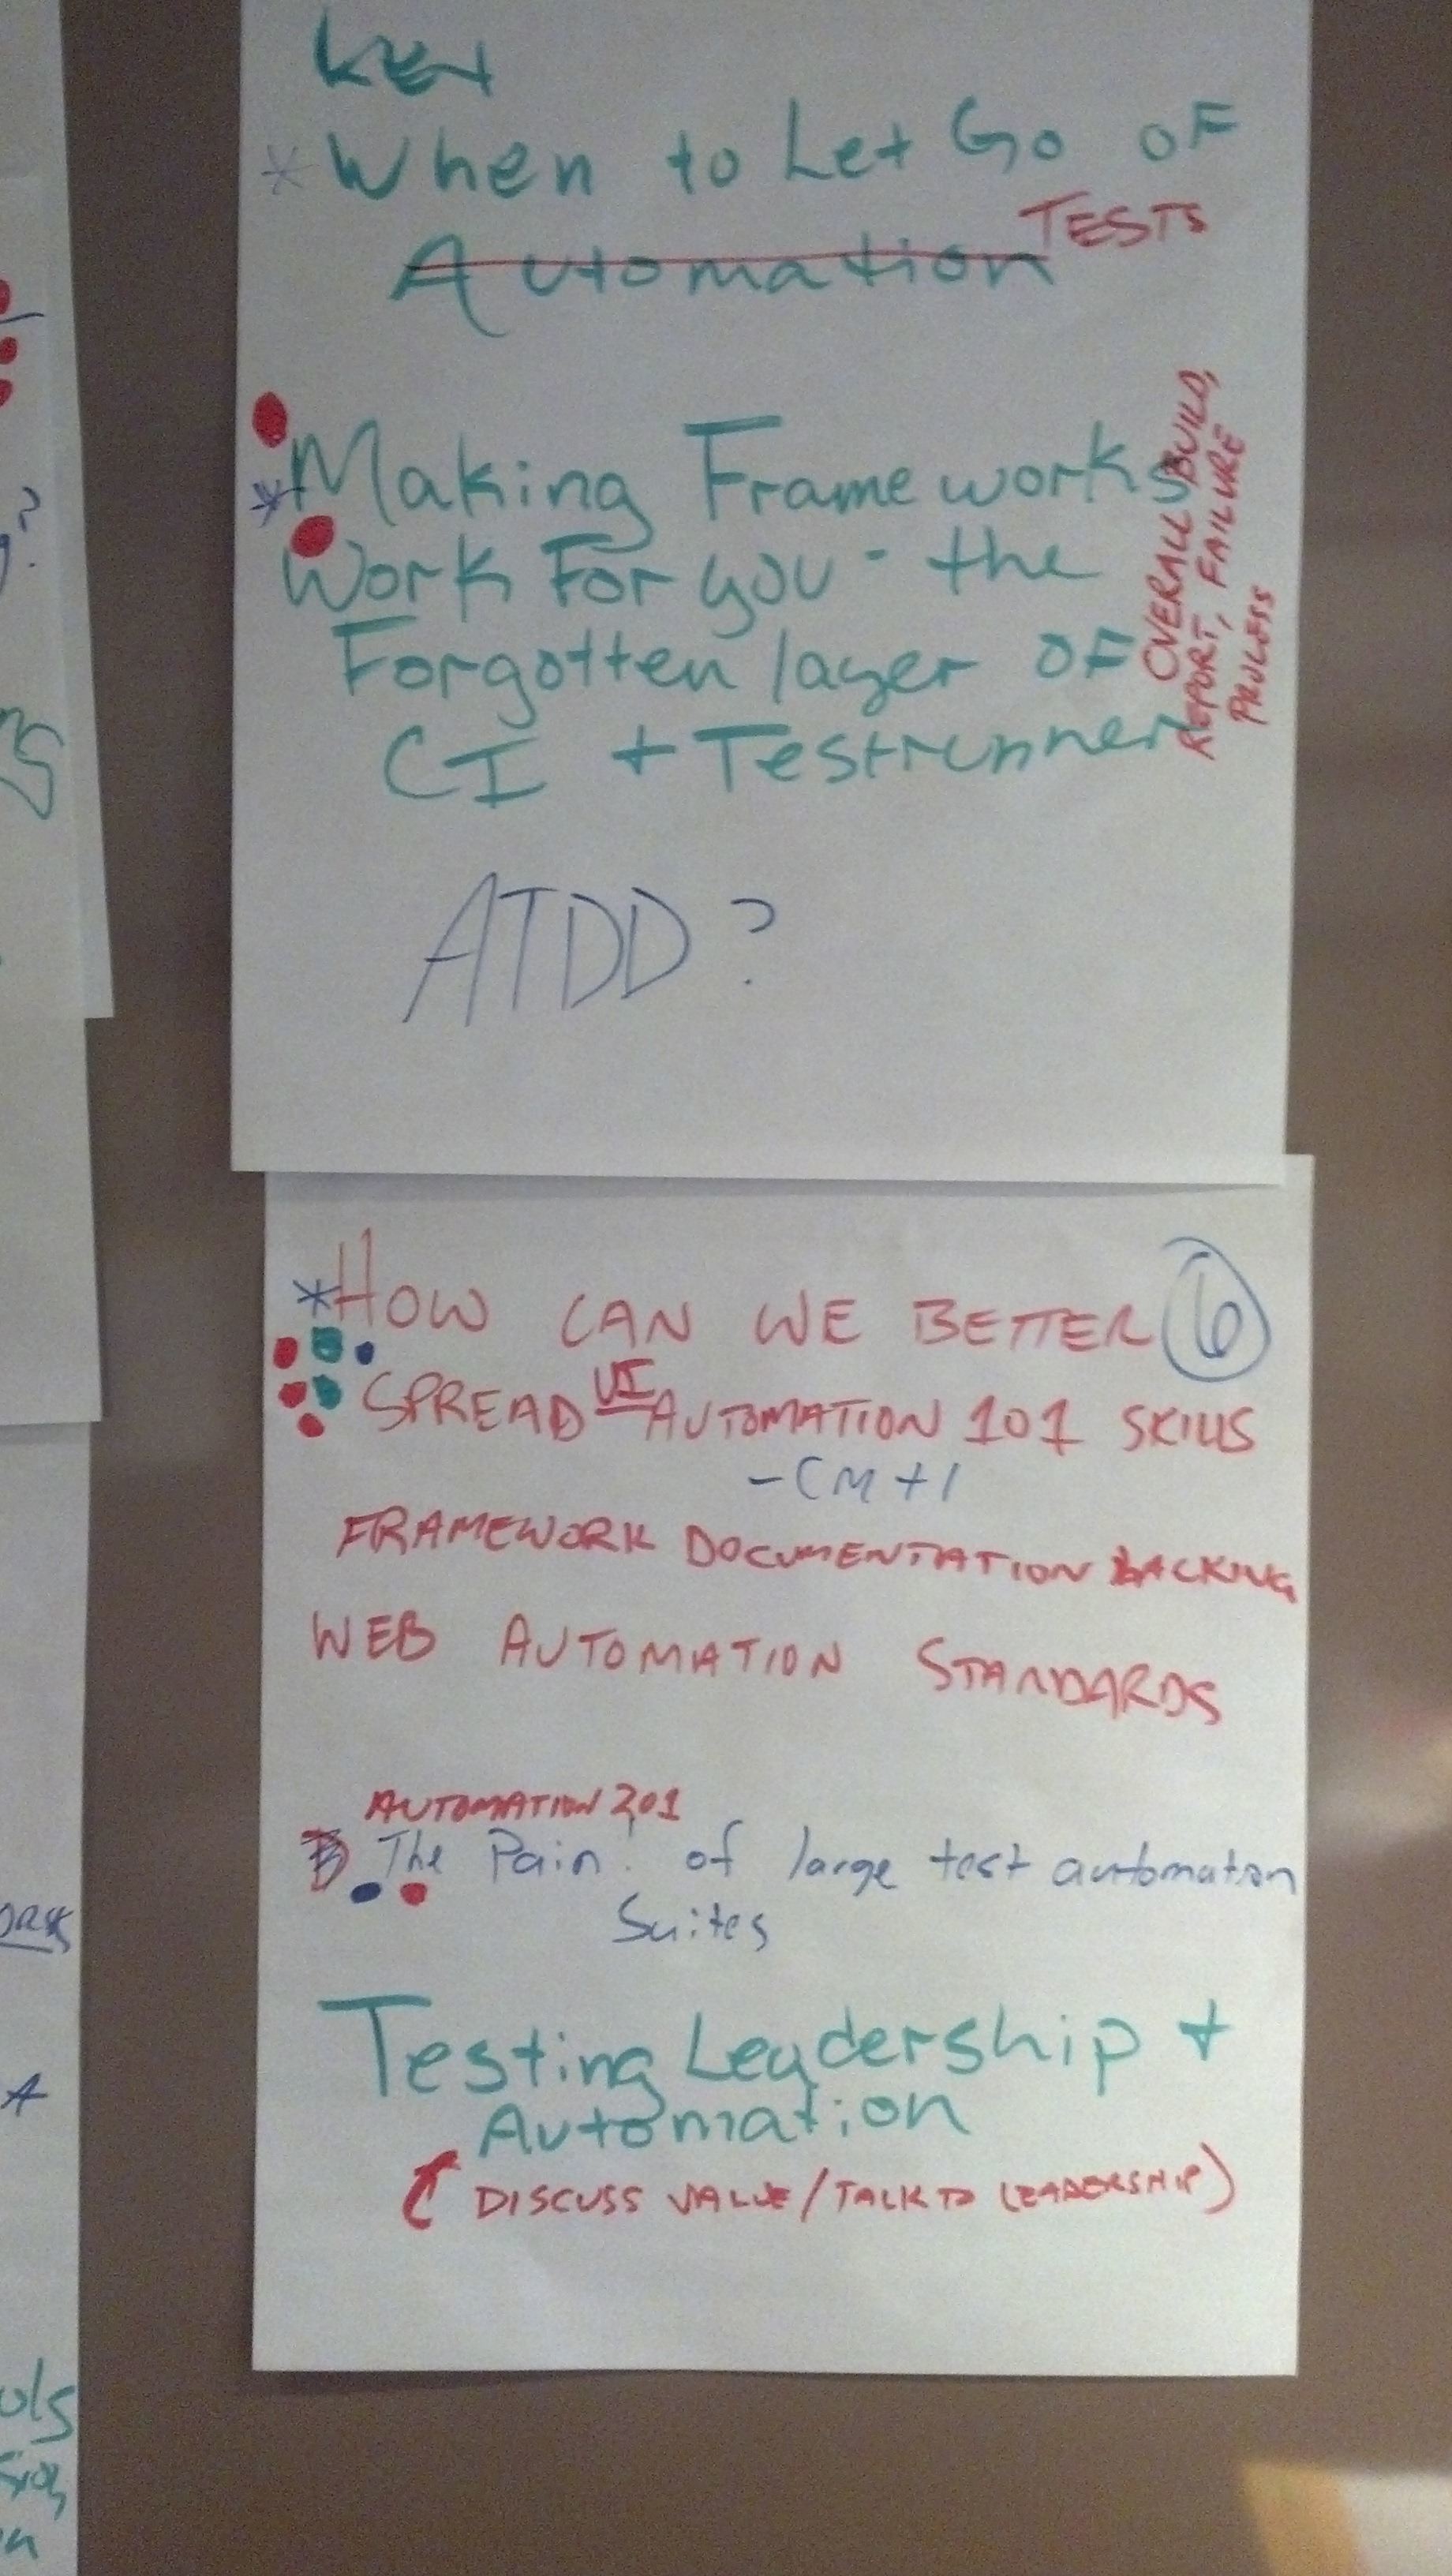 * When to Let Go OF
Automation TESTS
* Making Frameworks
Work For you - the
Forgotten layer OF
CI + Testrunner
OVERALL BUILD,
REPORT, FAILURE
PROCESS
ATDD?
* HOW CAN WE BETTER 6
SPREAD UI AUTOMATION 101 SKILLS
- CM +1
FRAMEWORK DOCUMENTATION BACKING
WEB AUTOMATION STANDARDS
AUTOMATION 201
The Pain! of large test automation
Suites
Testing Leadership +
Automation
( DISCUSS VALUE / TALK TO LEADERSHIP)